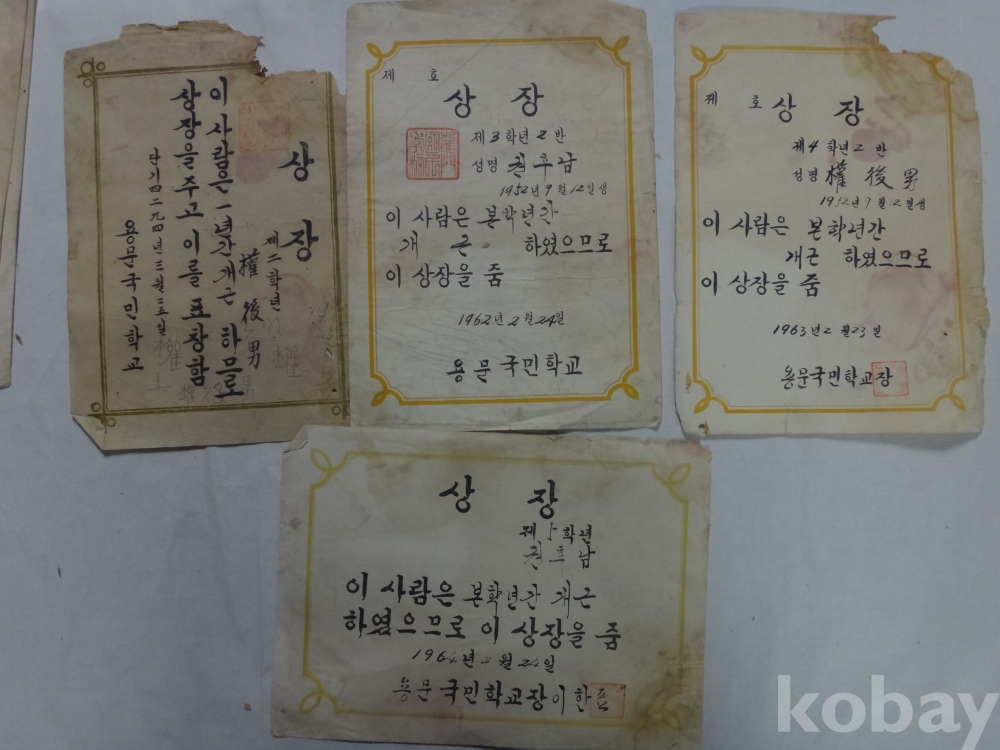 상 장
제二학년
權後男
이 사람은 一년간 개근 하므로
상장을 주고 이를 표창함
단기四二九四년 三월 二五일
용문국민학교
제 호
상 장
제3학년 2반
성명 권후남
1952년 9월 12일생
이 사람은 본학년간
개 근 하였으므로
이 상장을 줌
1962년 2월 24일
용문 국민학교
제 호
상 장
제4학년 2반
성명 權後男
1952년 9월 12일생
이 사람은 본학년간
개근 하였으므로
이 상장을 줌
1963년 2월 23일
용문국민학교장
상 장
제5학년
권후남
이 사람은 본학년간 개근
하였으므로 이 상장을 줌
1964년 2월 24일
용문국민학교장 이한
kobay